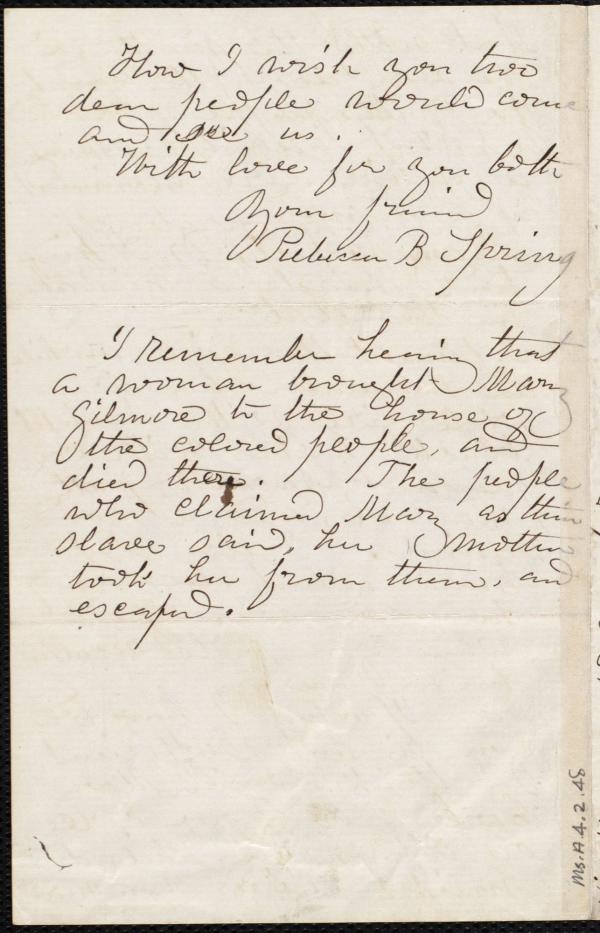 How I wish you two
dear people would come
and see us.
With love for you both
Your friend
Rebecca B Spring
I remember hearing that
a woman brought Mary
Gilmore to the house of
the colored people, and
died there. The people
who claimed Mary as their
slave said, her mother
took her from them, and
escaped.
Ms.A.4.2.48